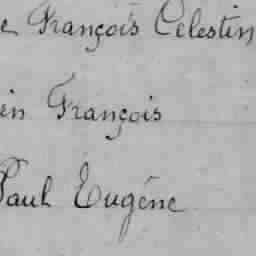 e François Celestin
en François
Paul Eugéne